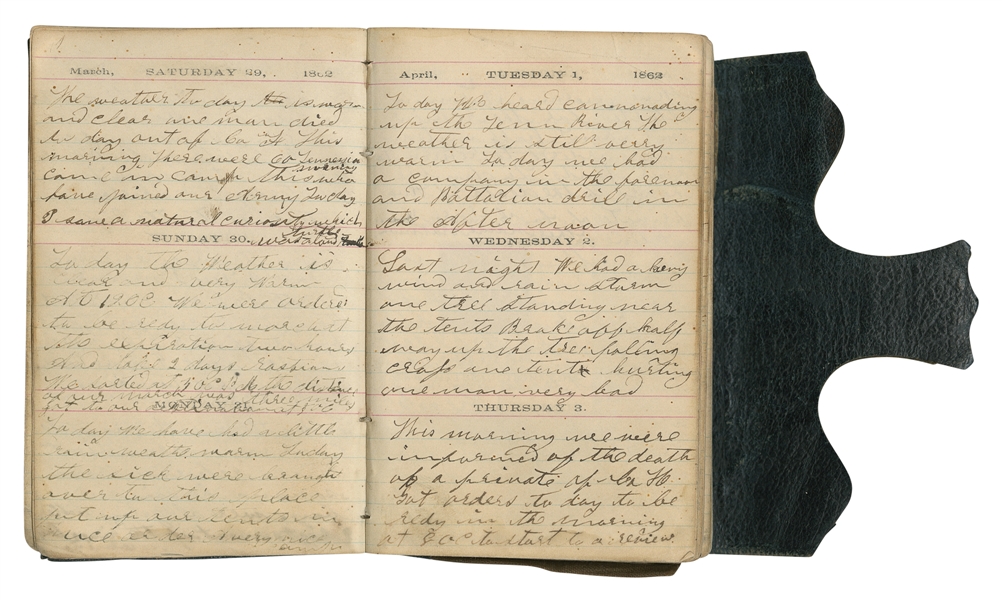 March, SATURDAY 29, 1862
The weather to day is warm
and clear one man died
to day out of Co H This
morning there were 60 Tennesseeans
came in camp this morning who
have joined our Army To day
I saw a natural curiosity which
was a
SUNDAY 30.
To day the Weather is
clear and very warm
At 12 OC We were ordered
to be redy to march at
the expiration two hours
and take 2 days Rassions
We started at 3 OC P.M. the distance
of our march was three miles
got to our
MONDAY 31.
To day We have had a little
rain weather warm To day
the sick were braught
over to this place
put up our tents in
nice order very nice
April, TUESDAY 1, 1862
To day We heard cannonading
up the Tenn River The
weather is still verry
warm To day we had
a company in the forenoon
and Battalion drill in
the After noon
WEDNESDAY 2.
Last night We had a heavy
wind and rain sturm
one tree standing near
the tents Brake off half
way up the tree falling
across one tent hurting
one man very bad
THURSDAY 3.
This morning we were
informed of the death
of a private of Co H.
Got orders to day to be
redy in the morning
at 8 OC to start to a review